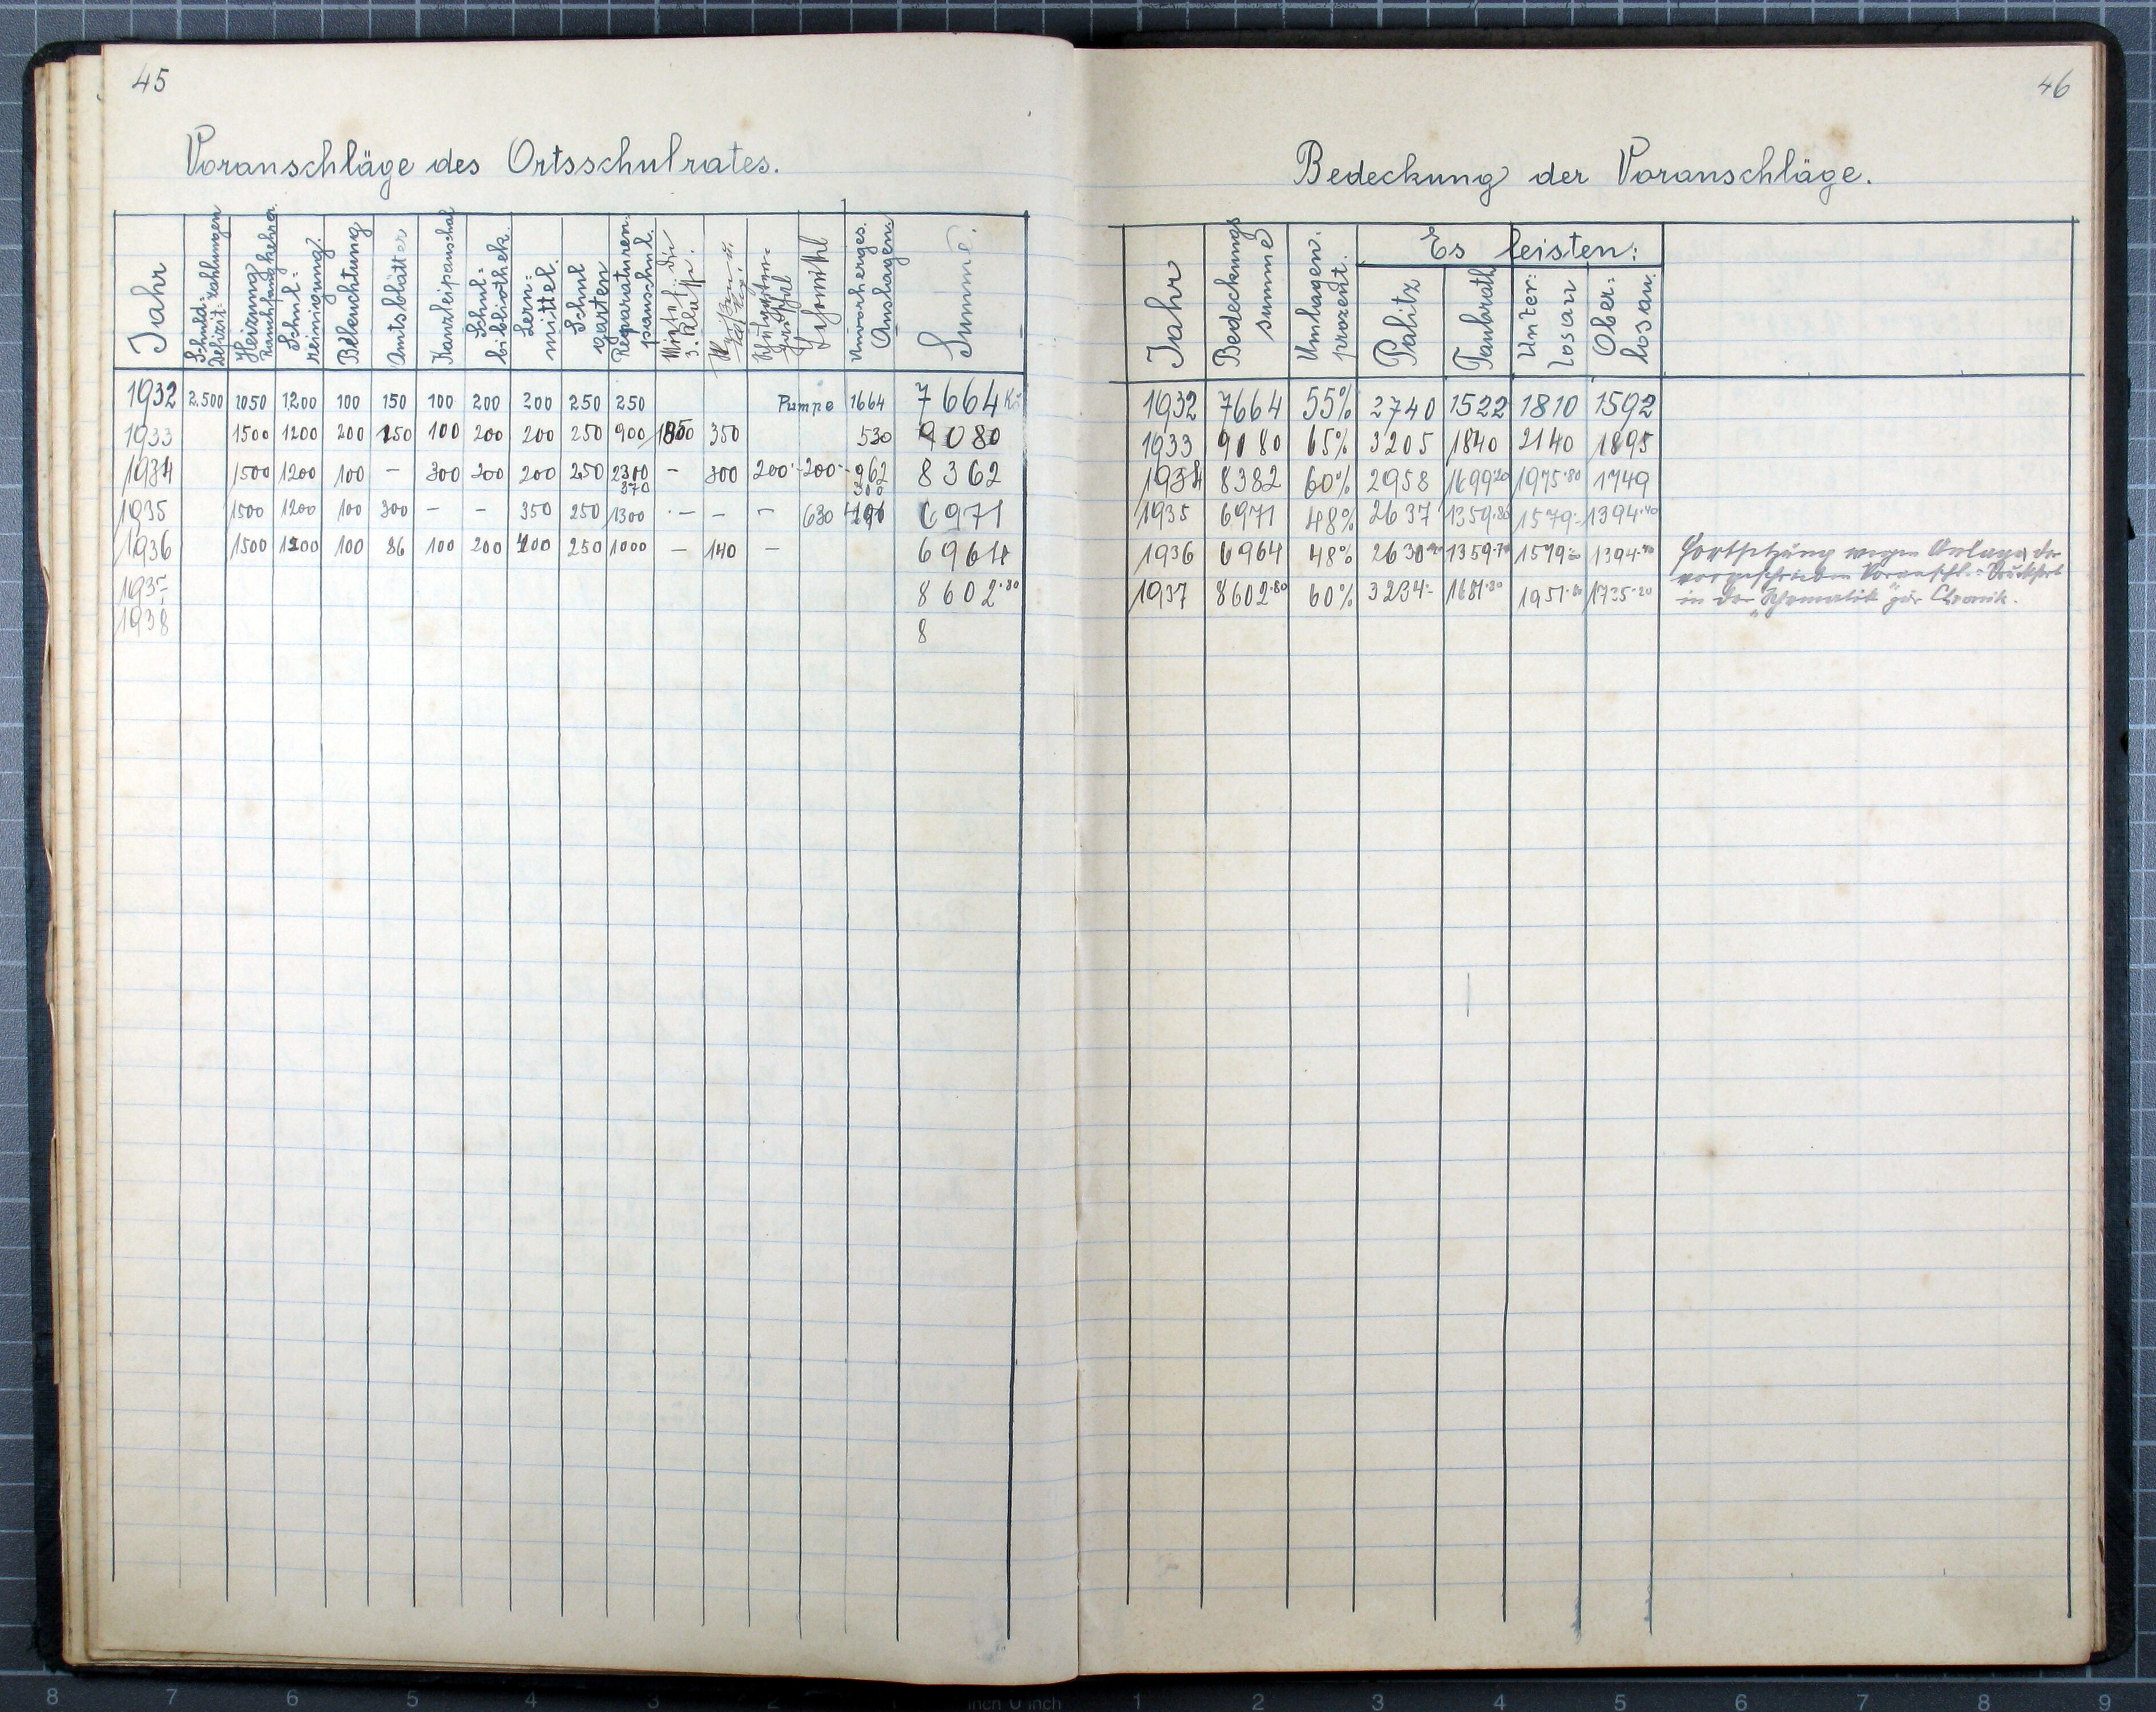 45
Voranschläge des Ortsschulrates.
Jahr Schuld= Defizit=zahlungen Heizung Rauchfangkehrer Schul= reinigung Beleuchtung Amtsblätter Kanzleipauschal Schul= bibliothek. Lern= mittel. Schul garten Reparaturen. pauschal. Miete f. die 3. Klasse. Unvorherges. Auslagen. Summe.
1932 2.500 1050 1200 100 150 100 200 200 250 250 Pumpe 1664 7664 Kč
1933 1500 1200 200 150 100 200 200 250 900 1850 350 530 9080
1934 1500 1200 100 – 300 200 200 250 2300 – 300 200·- 200·- 962 8362
370 300
1935 1500 1200 100 300 – – 350 250 1300 – – – 630 6971
1936 1500 1200 100 86 100 200 400 250 1000 – 140 – 6964
1937 8602·80
1938 8
46
Bedeckung der Voranschläge.
Jahr Bedeckungs summe Umlagen. prozent. Es leisten:
Palitz Taubrath Unter= losau Ober= losau.
1932 7664 55% 2740 1522 1810 1592
1933 9080 65% 3205 1840 2140 1895
1934 8382 60% 2958 1699·20 1975·80 1749
1935 6971 48% 2637 1359·36 1579·- 1394·40
1936 6964 48% 2630 1359·7 1579·- 1394·40
1937 8602·80 60% 3234·- 1681·20 1951· 1735·20
Fortsetzung wegen Anlage der
vorgeschrieben Voranschl.=
in der "Schematik" zur Chronik.